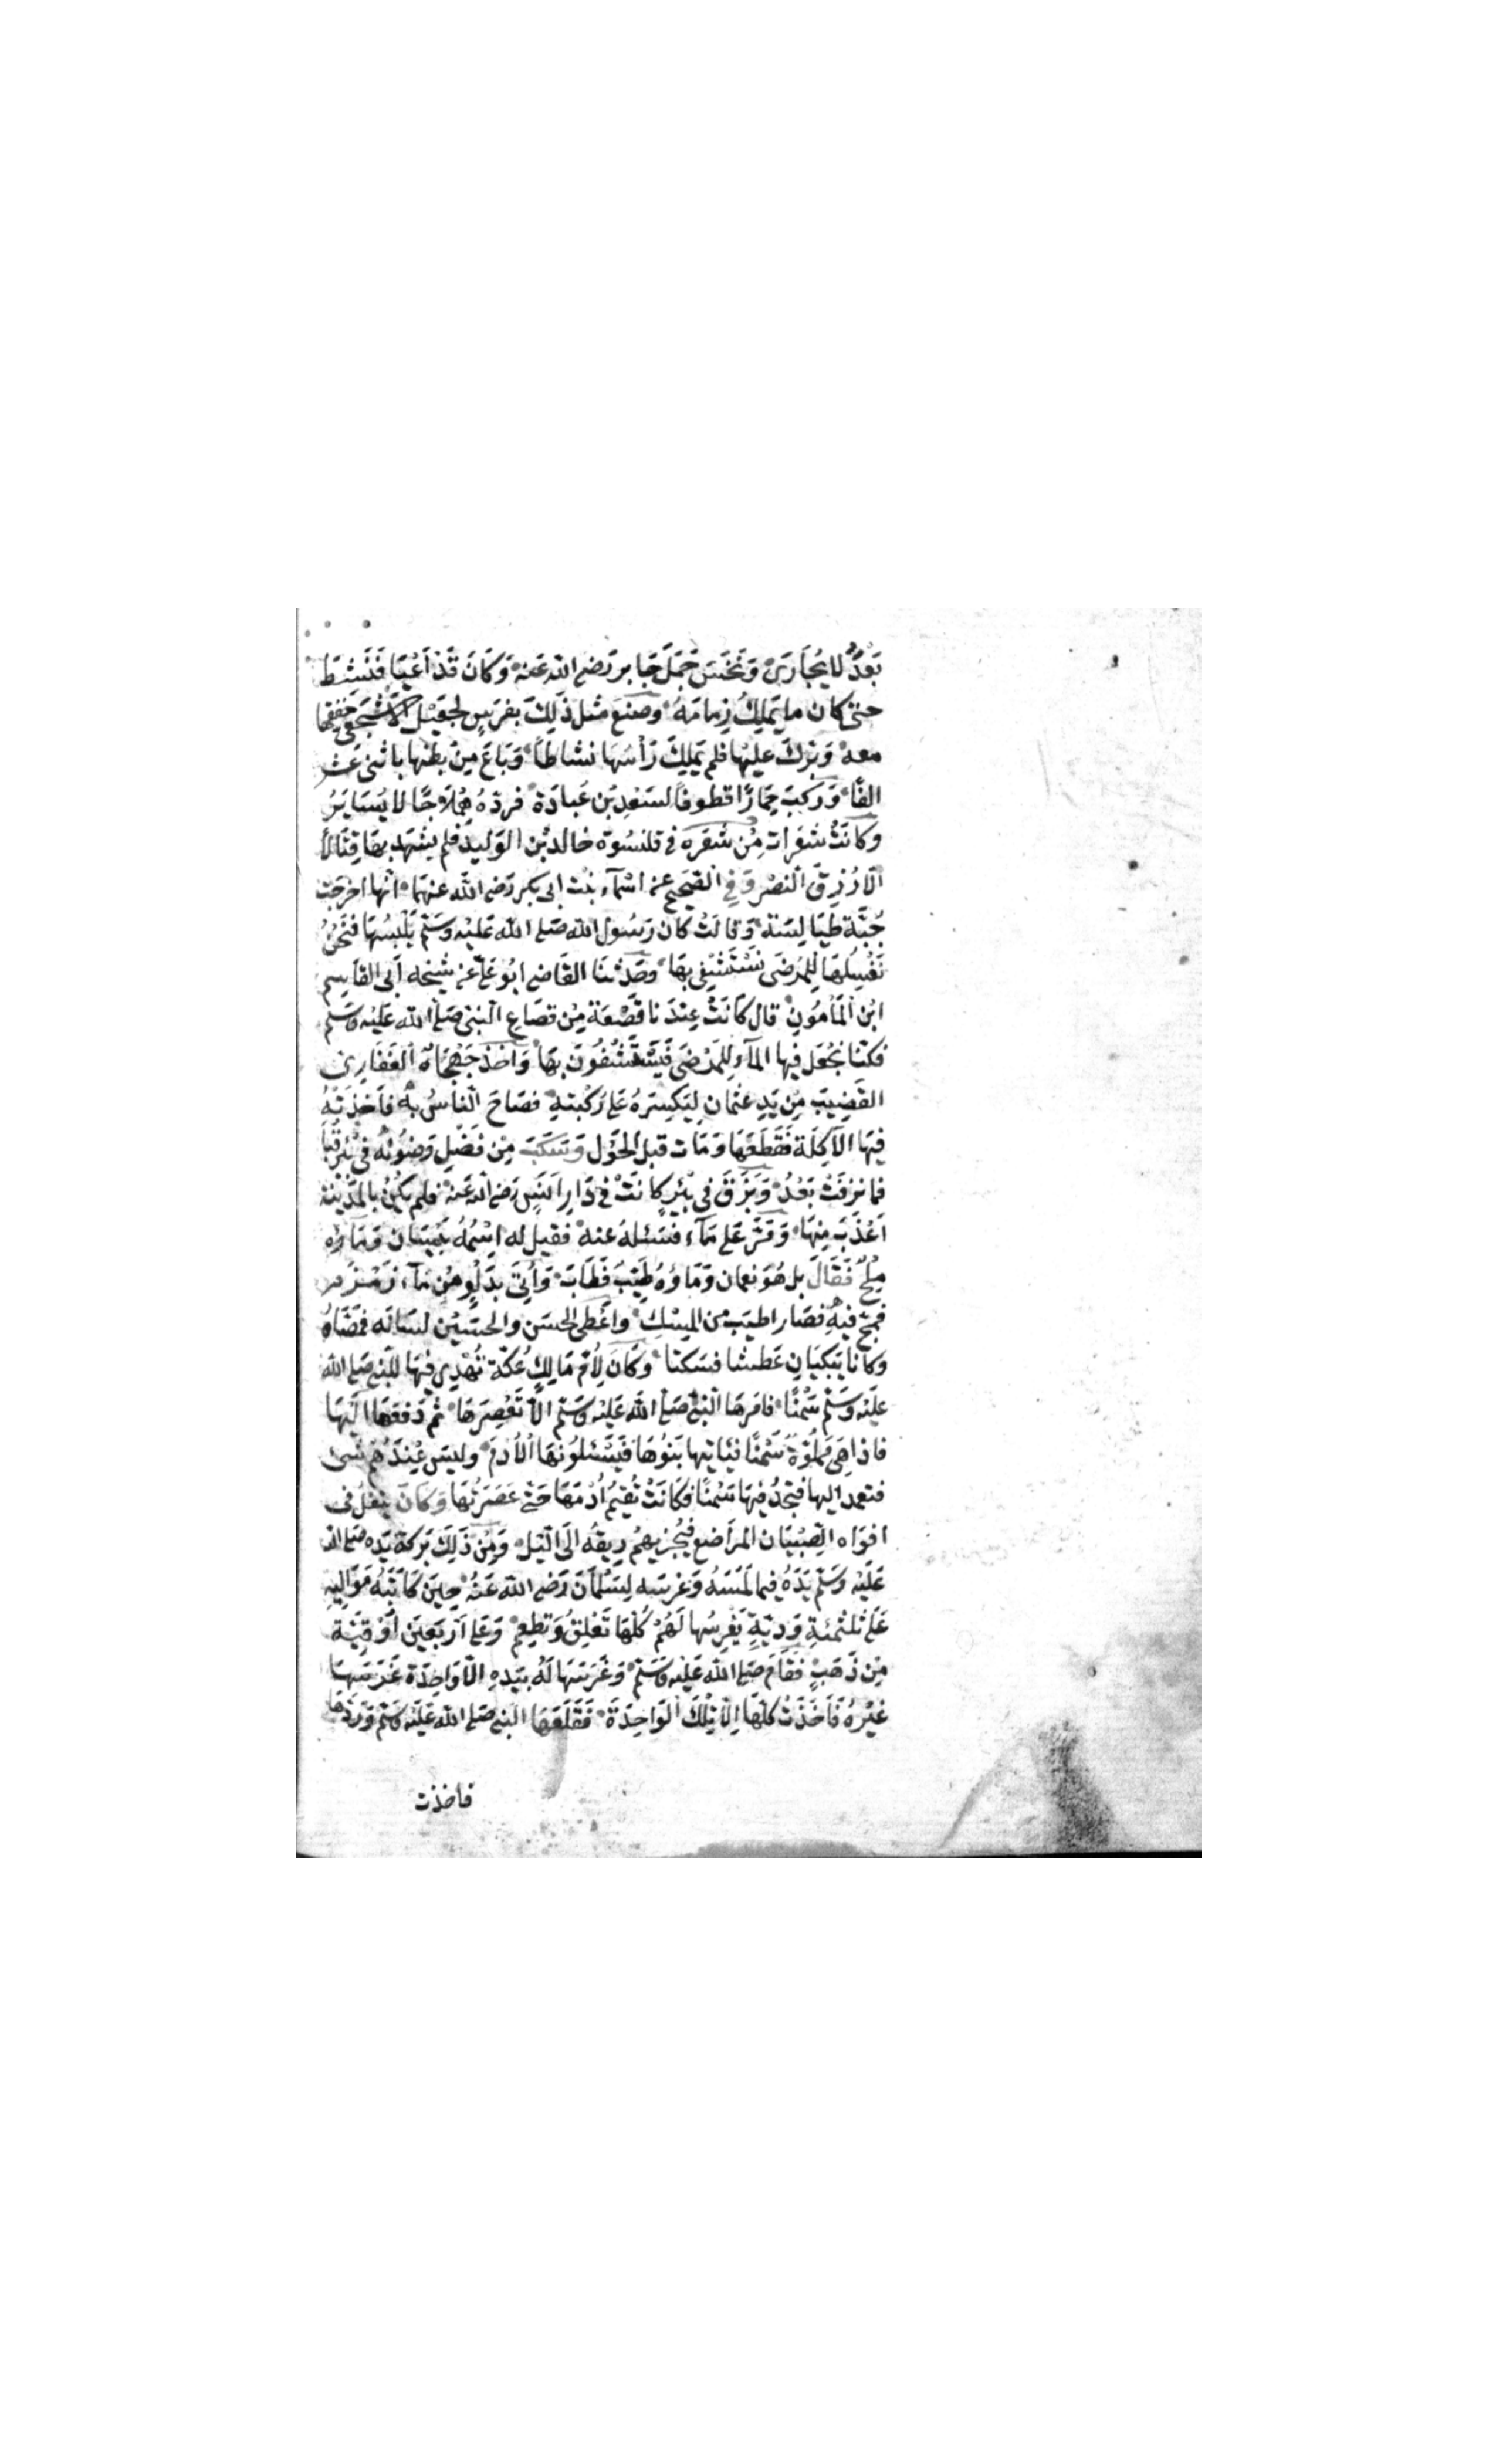 بَعْدُ لا يُجَارَى وَنَخَسَ جَمَلَ جَابر رَضي الله عَنه وَكَانَ قَدْ اَعْيَا فَنَشَطَ
حتى كان ما يَملِكُ زِمامَهُ وصَنَعَ مثل ذَلِكَ بفرَسٍ لجُعَيْل الأشجعى خَفَقَها
معه وَبَرَّكَ عليْها فلم يَملِكْ رَأسَهَا نشاطًا وَبَاعَ مِنْ بطنها باثنى عَشر
الفًا وَرَكبَ حِمَارًا قطوفًا لسَعْدِ بْن عُبادَة فردّهُ هِمْلاجًا لا يُسَايَرُ
وكانَتْ شعَرات مِنْ شعَره فى قلنسُوة خالد بْن الوَليد فلم يشْهد بهَا قِتالاً
الّا رُزِقَ النّصْر وَفي الصّحيح عن اسْمآء بنت ابى بكر رَضى الله عنهمَا انّها اخرَجت
جُبّة طيَالِسَة وَقالَتْ كان رَسُول الله صَلى الله عَليْه وَسَلّم يَلْبسُهَا فنَحْنُ
نَغْسِلُهَا لِلمَرْضَى نَسْتَشْفِى بهَا وحَدّثنَا القَاضى ابُو عَلىّ عن شيْخه اَبى القاَسِم
ابْن المَأمُونِ قال كَانَتْ عِنْدَنا قَصْعَة مِنْ قصَاع النّبىّ صَلّى الله عَليْه وَسَلّم
فكنّا نجْعَل فيها المآء لِلمَرْضَى فَيَسْتَشْفُونَ بهَا وَاَخذ جَهْجَاهُ الغفَارِى
القَضِيبَ مِن يَدِ عثمان لِيَكسِرَهُ عَلى رُكْبَتهِ فصَاحَ النّاسُ به فاَخَذَتْهُ
فيهَا الآكِلَة فَقَطَعَهَا وَمَات قبل الحَوْل وَسَكَبَ مِن فَضْلِ وَضوُئه فى بئر قُبَا
فما نزفَتْ بَعْدُ وَبَزَقَ فى بئر كانَتْ فى دَار اَنَسٍ رَضى الله عَنه فلم يكن بالمدَينة
اَعْذَبَ مِنهَا وَمَرّ عَلى مَآء فسَئلهُ عنه فقيل له اسْمُهُ بَيْسَان وَمَاؤه
مِلْحٌ فَقَالَ بل هُوَ نعمان وَمَاؤهُ طَيّبٌ فَطَابَ وَاُتِىَ بدَلْوٍ مِن مآء زمْزم
فمَجّ فيْهِ فصَار اطيَبَ من المِسْك واَعْطى الحسَن والحسَيْن لسَانَه فمَصّاهُ
وكانا يَبْكيَان عَطشا فسَكتا وكَانَ لِأمّ مَالِكٍ عُكّة تُهْدِى فيهَا للنّبى صَلى الله
عليْه وَسَلّم سَمْنًا فامَرهَا النّبىّ صَلّى الله عَليْه وَسَلّم الّا تَعْصِرَهَا ثم دَفعَهَا اليْهَا
فاذا هى مَملُوّة سَمْنًا فيَاتيها بَنُوهَا فيَسْئلوُنهَا الاُدمَ وليسَ عِنْدَهُم شئ
فتعمد اليها فتجدُ فيهَا سَمْنًا فكَانَتْ تُقيمُ اُدْمَهَا حَتى عَصَرَتْهَا وَكانَ يتفلُ فى
افوَاه الصّبيَان المرَاضع فيُجْزيهمْ ريقُه الَى الليْل وَمِنْ ذَلِكَ بَرَكة يَده صَلى الله
عَلَيْه وَسَلّم يَدَهُ فيما لَمَسَهُ وَغرَسَه لِسَلْمَانَ رَضى الله عَنْهُ حِينَ كَاتَبَهُ مَوَاليهِ
عَلى ثلثمئةِ وَدِيّةٍ يَغْرِسُها لَهُمْ كُلهَا تَعْلقُ وَتطعِم وَعَلى اَرْبَعينَ اُوْقِيَّة
مِنْ ذَهَبٍ فَقَامَ صَلى الله عَليْه وَسَلّم وَغَرَسَهَا لَهُ بيَدهِ الّا وَاحِدَة غَرَسَهَا
غيْرُهُ فَاَخَذَتْ كلهَا اِلّا تِلْكَ الوَاحِدَة فَقَلَعَهَا النّبى صَلى الله عَليْه وَسَلّم وَرَدّهَا
فاخذت